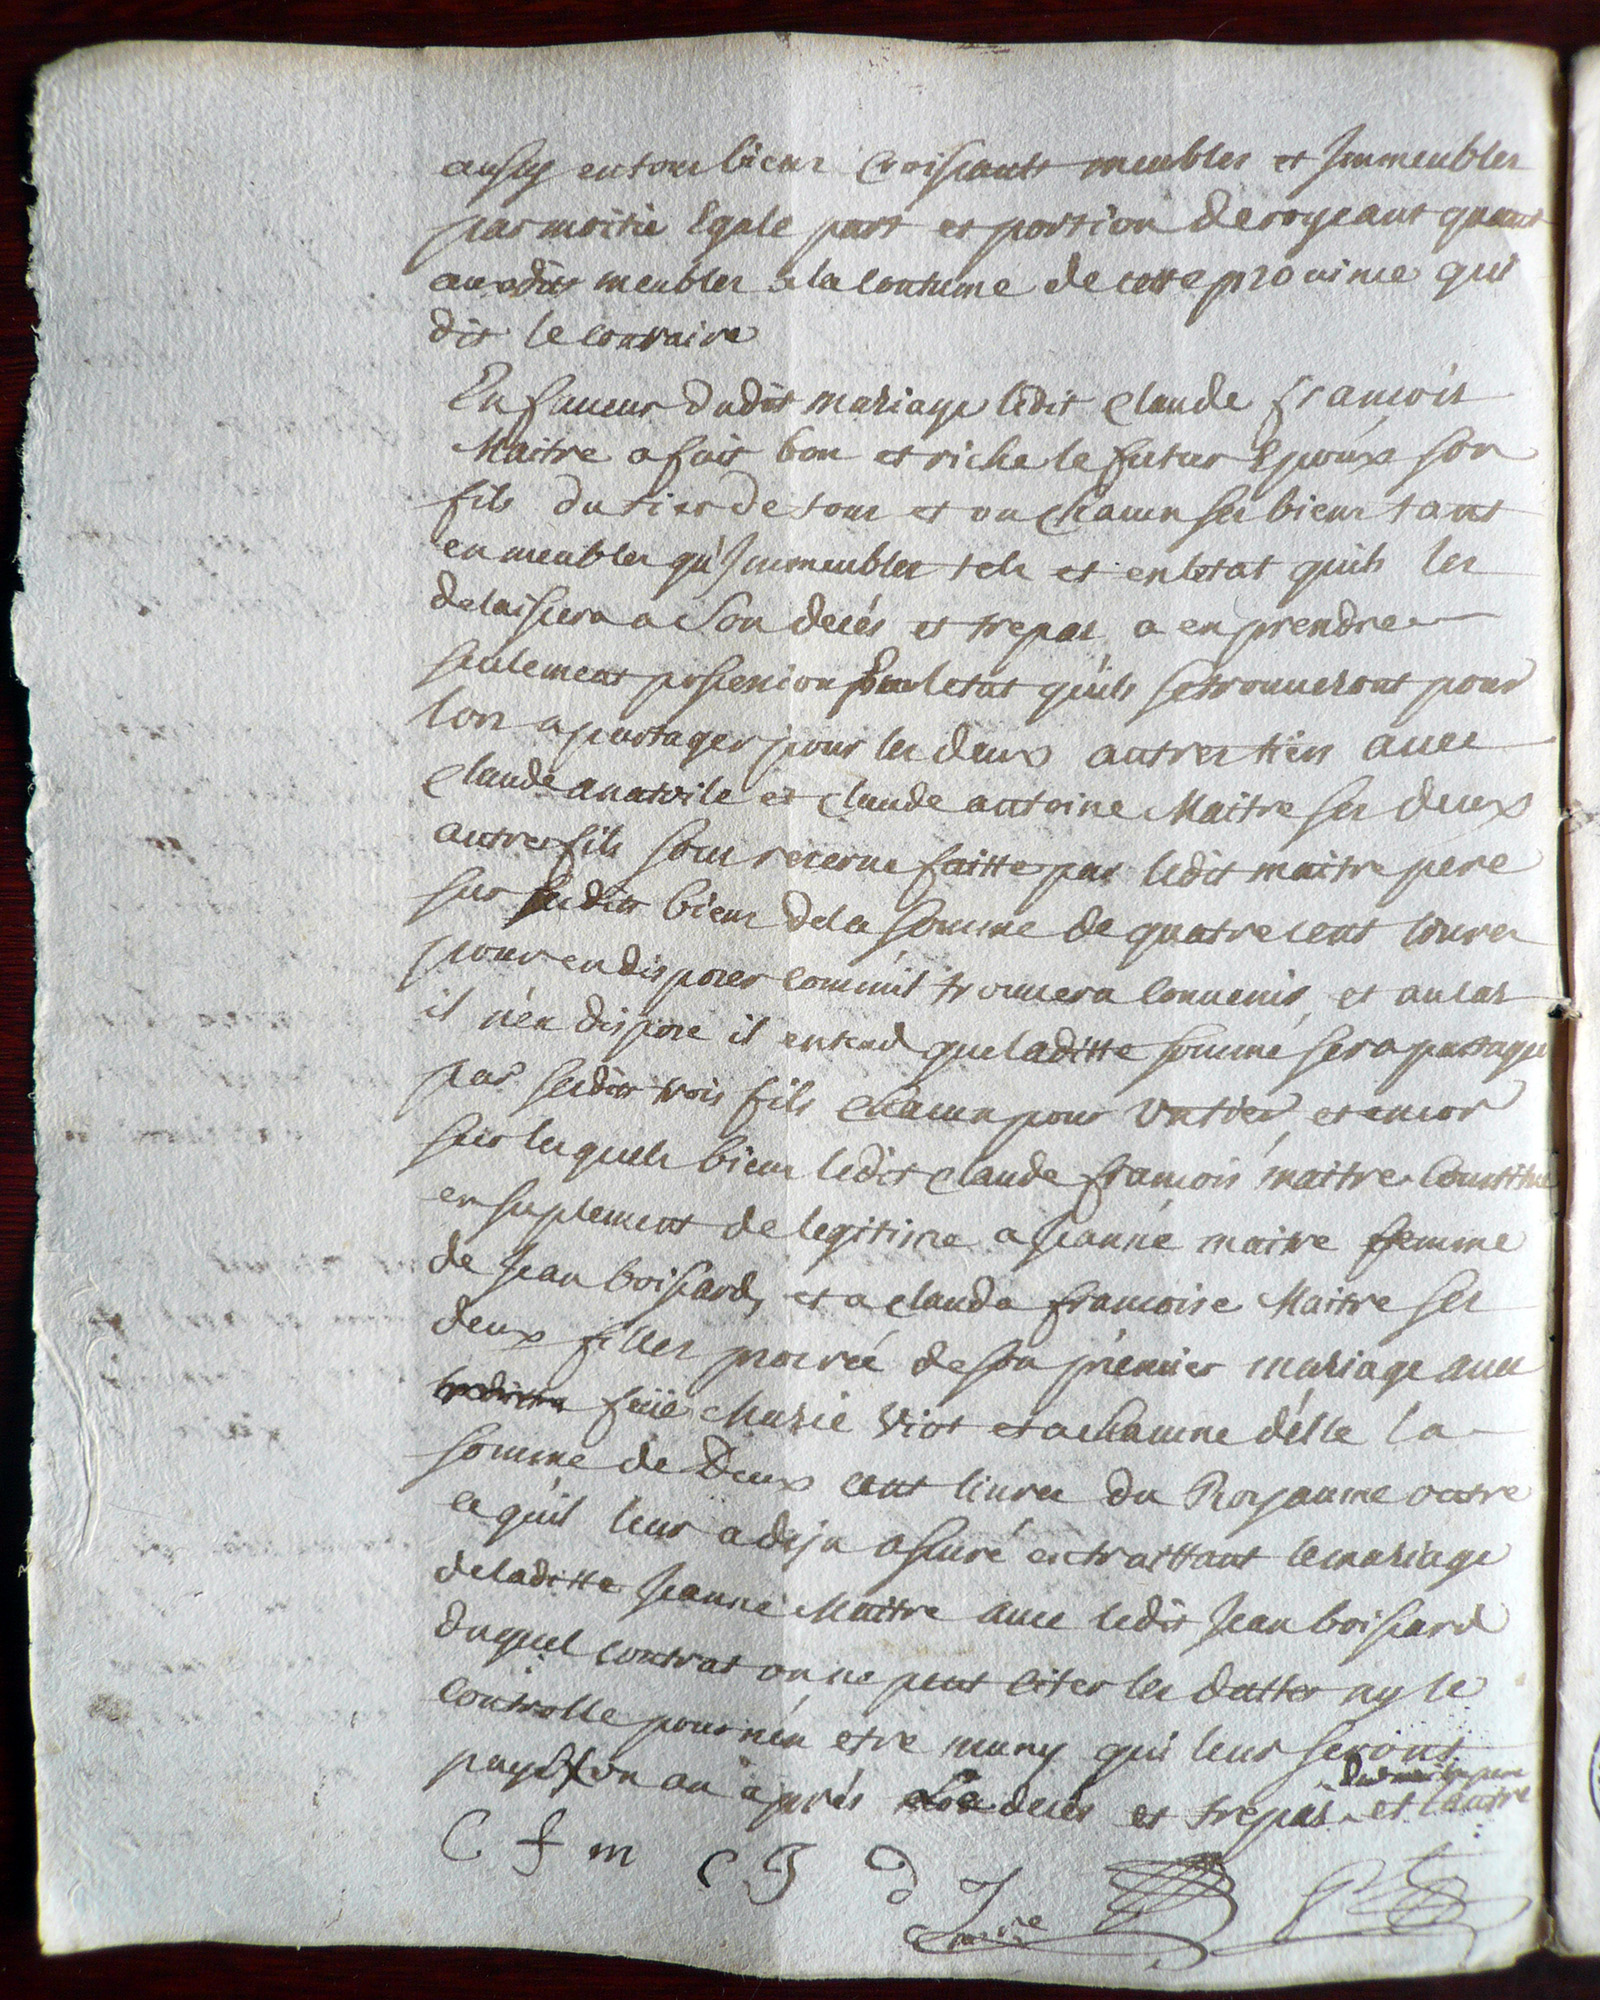 aussy en tous biens croissants meubles et Immeubles
par moitié Egale part et portion derogeant quant
auxdits meubles a la Coutume de cette province qui
dit le contraire
En faveur dudit mariage ledit Claude françois
Maitre a fait bon et riche le futur Epoux son
fils du tier de tous et un chacun ses biens tant
en meubles qu'Immeubles tels et en l'etat quils les
delaissera a Son decés et trepas, a en prendre
seulement possession en l'etat quils se trouueront pour
lors a partager pour les deux autres tiers auec
Claude anatoile et Claude antoine Maitre ses deux
autres fils sous reserue faitte par ledit maitre pere
sur sesdits biens de la somme de quatre cent liures
pour en disposer comm'il trouuera conuenir, et au cas
il n'en dispose il entend que laditte somme sera partagé
par sesdits trois fils chacun pour un tier, et encor
sur lesquels biens ledit Claude françois maitre Constitue
en suplement de legitime a Jeanne maitre femme
de Jean boissard, et a Claude françoise Maitre ses
deux filles procréé de son prémier mariage auec
feüe Marie Viot et a chacune d'élle la
somme de Deux cent liures du Royaume outre
ce quil leur a deja assuré en traittant le mariage
de laditte Jeanne Maitre auec ledit Jean boissard
duquel contrat on ne peut citer les dattes ny le
controlle pour n'én etre muny qui leur seront
payé l'un an aprés le decés et trepas dud maitre pere et l'autre
C f m C J d J